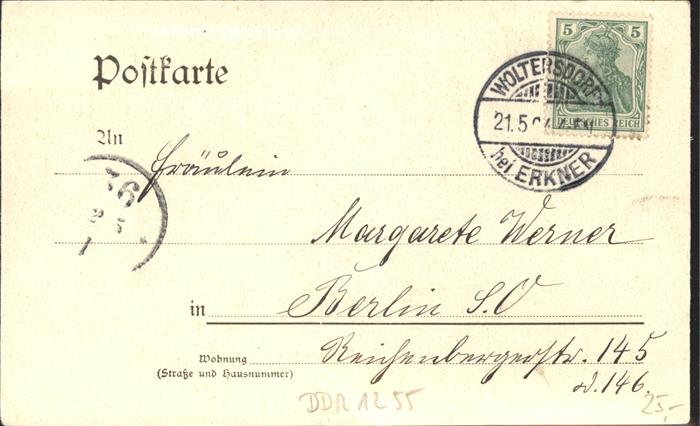 Postkarte
5 5
DEUTSCHES REICH
WOLTERSDORF
21.5
bei ERKNER
An
Fräulein
36
Margarete Werner
in Berlin S.O
Wohnung Reichenbergerstr. 145
(Straße und Hausnummer)
od. 146.
DDR 1255
25,-